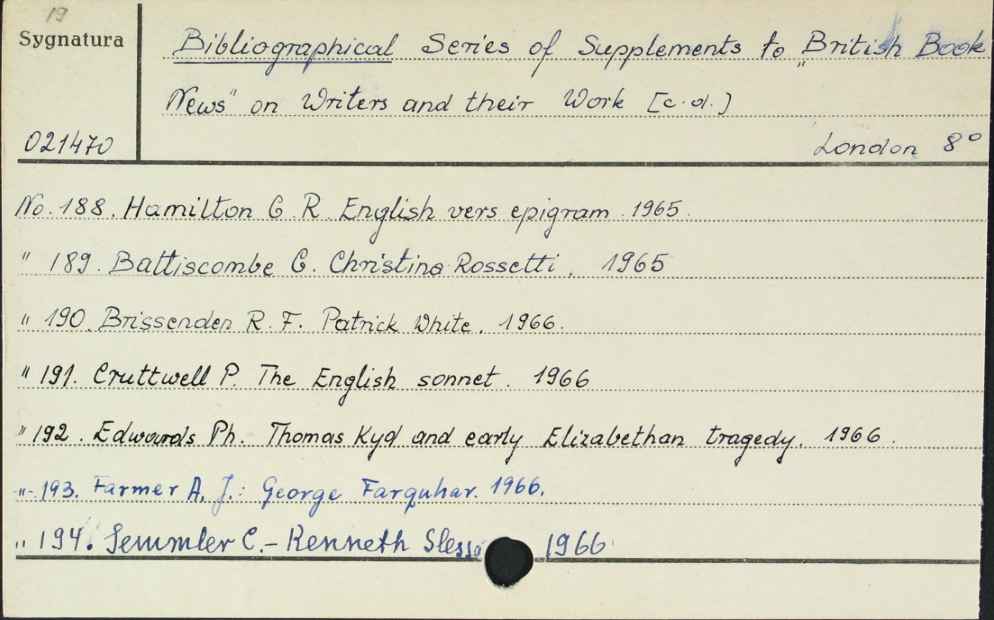 19
Sygnatura
Bibliographical Series of Supplements to „British Book
News" on Writers and their Work [c.d.]
021470
London 8°
No. 188. Hamilton G R English vers epigram. 1965.
" 189. Battiscombe G. Christina Rossetti. 1965
" 190. Brissenden R. F. Patrick White. 1966.
" 191. Cruttwell P. The English sonnet. 1966
" 192. Edwards Ph. Thomas Kyd and early Elizabethan tragedy. 1966.
-"- 193. Farmer A. J.: George Farquhar. 1966.
" 194. Semmler C. – Kenneth Slesso 1966